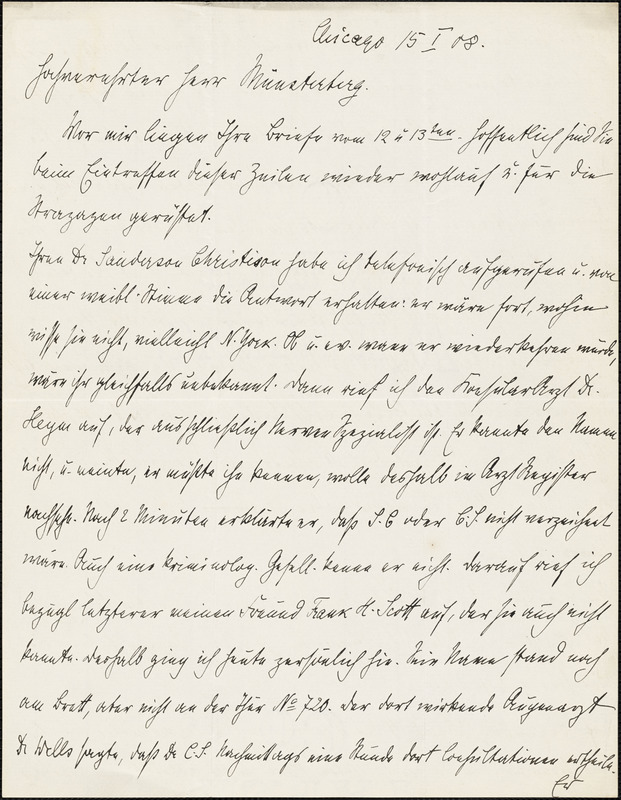 Chicago 15 I 08.
Hochverehrter Herr Münsterberg.
Vor mir liegen Ihre Briefe vom 12 u 13ten. Hoffentlich sind Sie
beim Eintreffen dieser Zeilen wieder wohlauf u. für die
Strapazen gerüstet.
Ihren Dr Sanderson Christison habe ich telefonisch aufgerufen u. von
einer weibl. Stimme die Antwort erhalten: er wäre fort, wohin
wisse sie nicht, vielleicht N. York. Ob u. ev. wann er wiederkehren würde,
wäre ihr gleichfalls unbekannt. Dann rief ich den Konsular Arzt Dr.
Heym auf, der ausschließlich Nerven Spezialist ist. Er kannte den Namen
nicht, u. meinte, er müßte ihn kennen, wolle deshalb im Arzt Register
nachsehn. Nach 2 Minuten erklärte er, daß S. C oder C. S. nicht verzeichnet
wäre. Auch eine kriminolog. Gesell. kenne er nicht. Darauf rief ich
bezügl letzterer meinen Freund Frank H. Scott auf, der sie auch nicht
kannte. Deshalb ging ich heute persönlich hin. Sein Name stand noch
am Brett, aber nicht an der Thür No 720. Der dort wirkende Augenarzt
Dr Wells sagte, daß Dr C. S. Nachmittags eine Stunde dort Consultationen ertheile.
Er